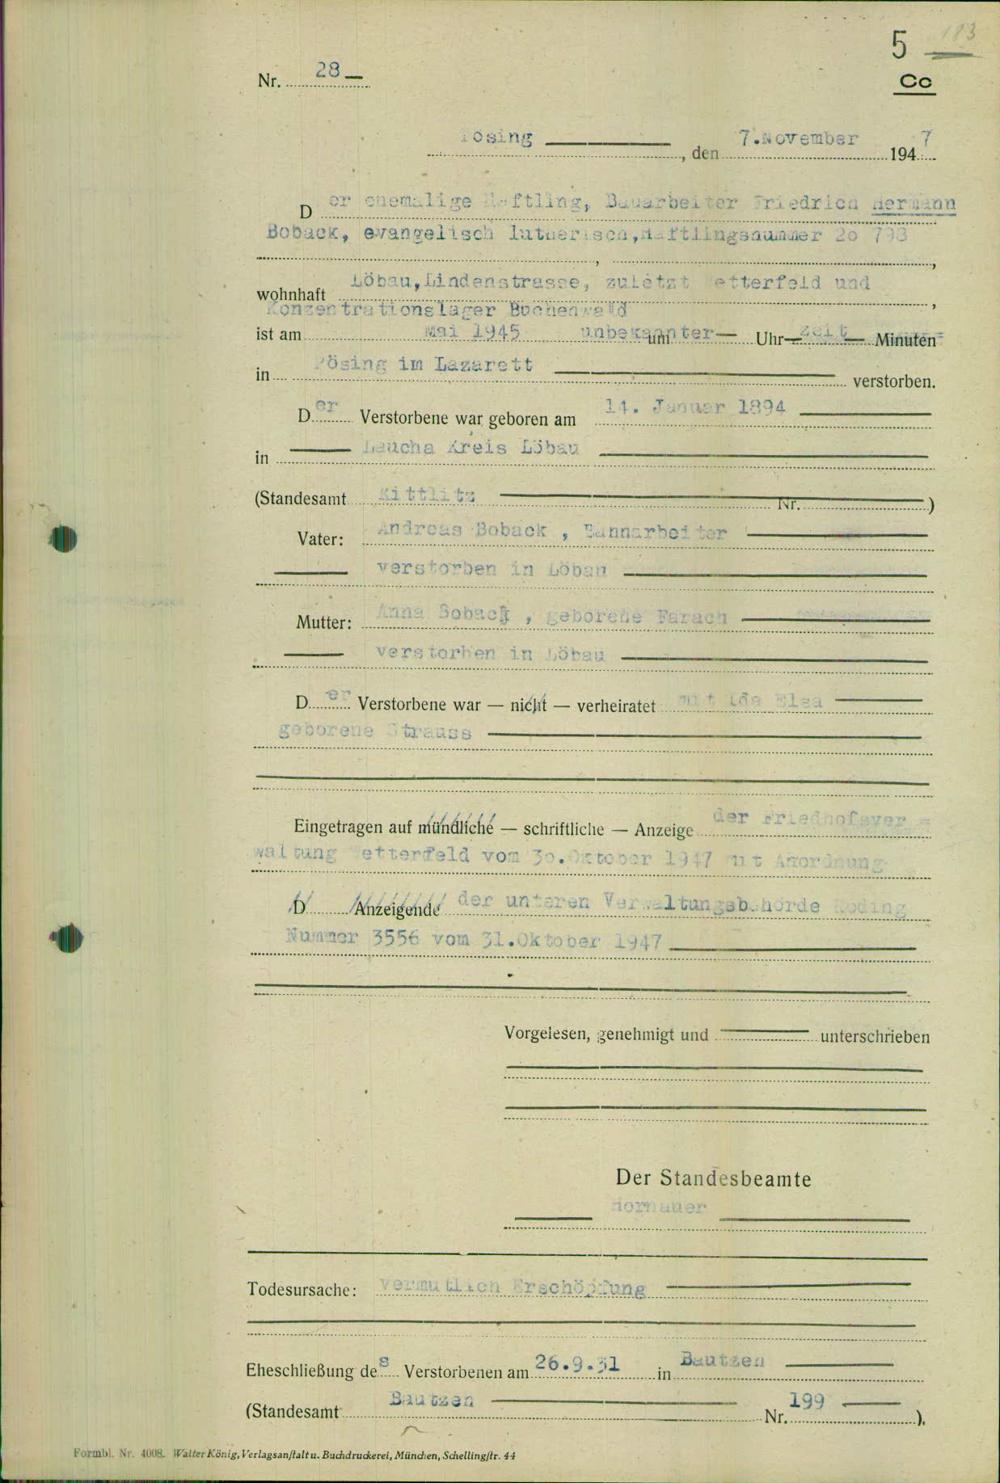 5 183
Cc
Nr. 28
Pösing, den 7.November 1947
Der ehemalige Häftling, Bauarbeiter Friedrich Hermann
Boback, evangelisch lutherisch, Häftlingsnummer 20 793
wohnhaft Löbau, Lindenstrasse, zuletzt Wetterfeld und
Konzentrationslager Buchenwald,
ist am Mai 1945 um unbekannter Uhr Zeit Minuten
in Pösing im Lazarett verstorben.
Der Verstorbene war geboren am 14. Januar 1894
in Laucha Kreis Löbau
(Standesamt Kittlitz Nr. )
Vater: Andreas Boback, Bahnarbeiter
verstorben in Löbau
Mutter: Anna Boback, geborene Farach
verstorben in Löbau
Der Verstorbene war — nicht — verheiratet mit Ida Elsa
geborene Strauss
Eingetragen auf mündliche — schriftliche — Anzeige der Friedhofsver=
waltung Wetterfeld vom 30.Oktober 1947 mit Anordnung
D Anzeigende der unteren Verwaltungsbehörde Roding
Nummer 3556 vom 31.Oktober 1947
Vorgelesen, genehmigt und unterschrieben
Der Standesbeamte
Hornauer
Todesursache: Vermutlich Erschöpfung
Eheschließung des Verstorbenen am 26.9.31 in Bautzen
(Standesamt Bautzen Nr. 199 ).
Formbl. Nr. 4008. Walter König, Verlagsanstalt u. Buchdruckerei, München, Schellingstr. 44